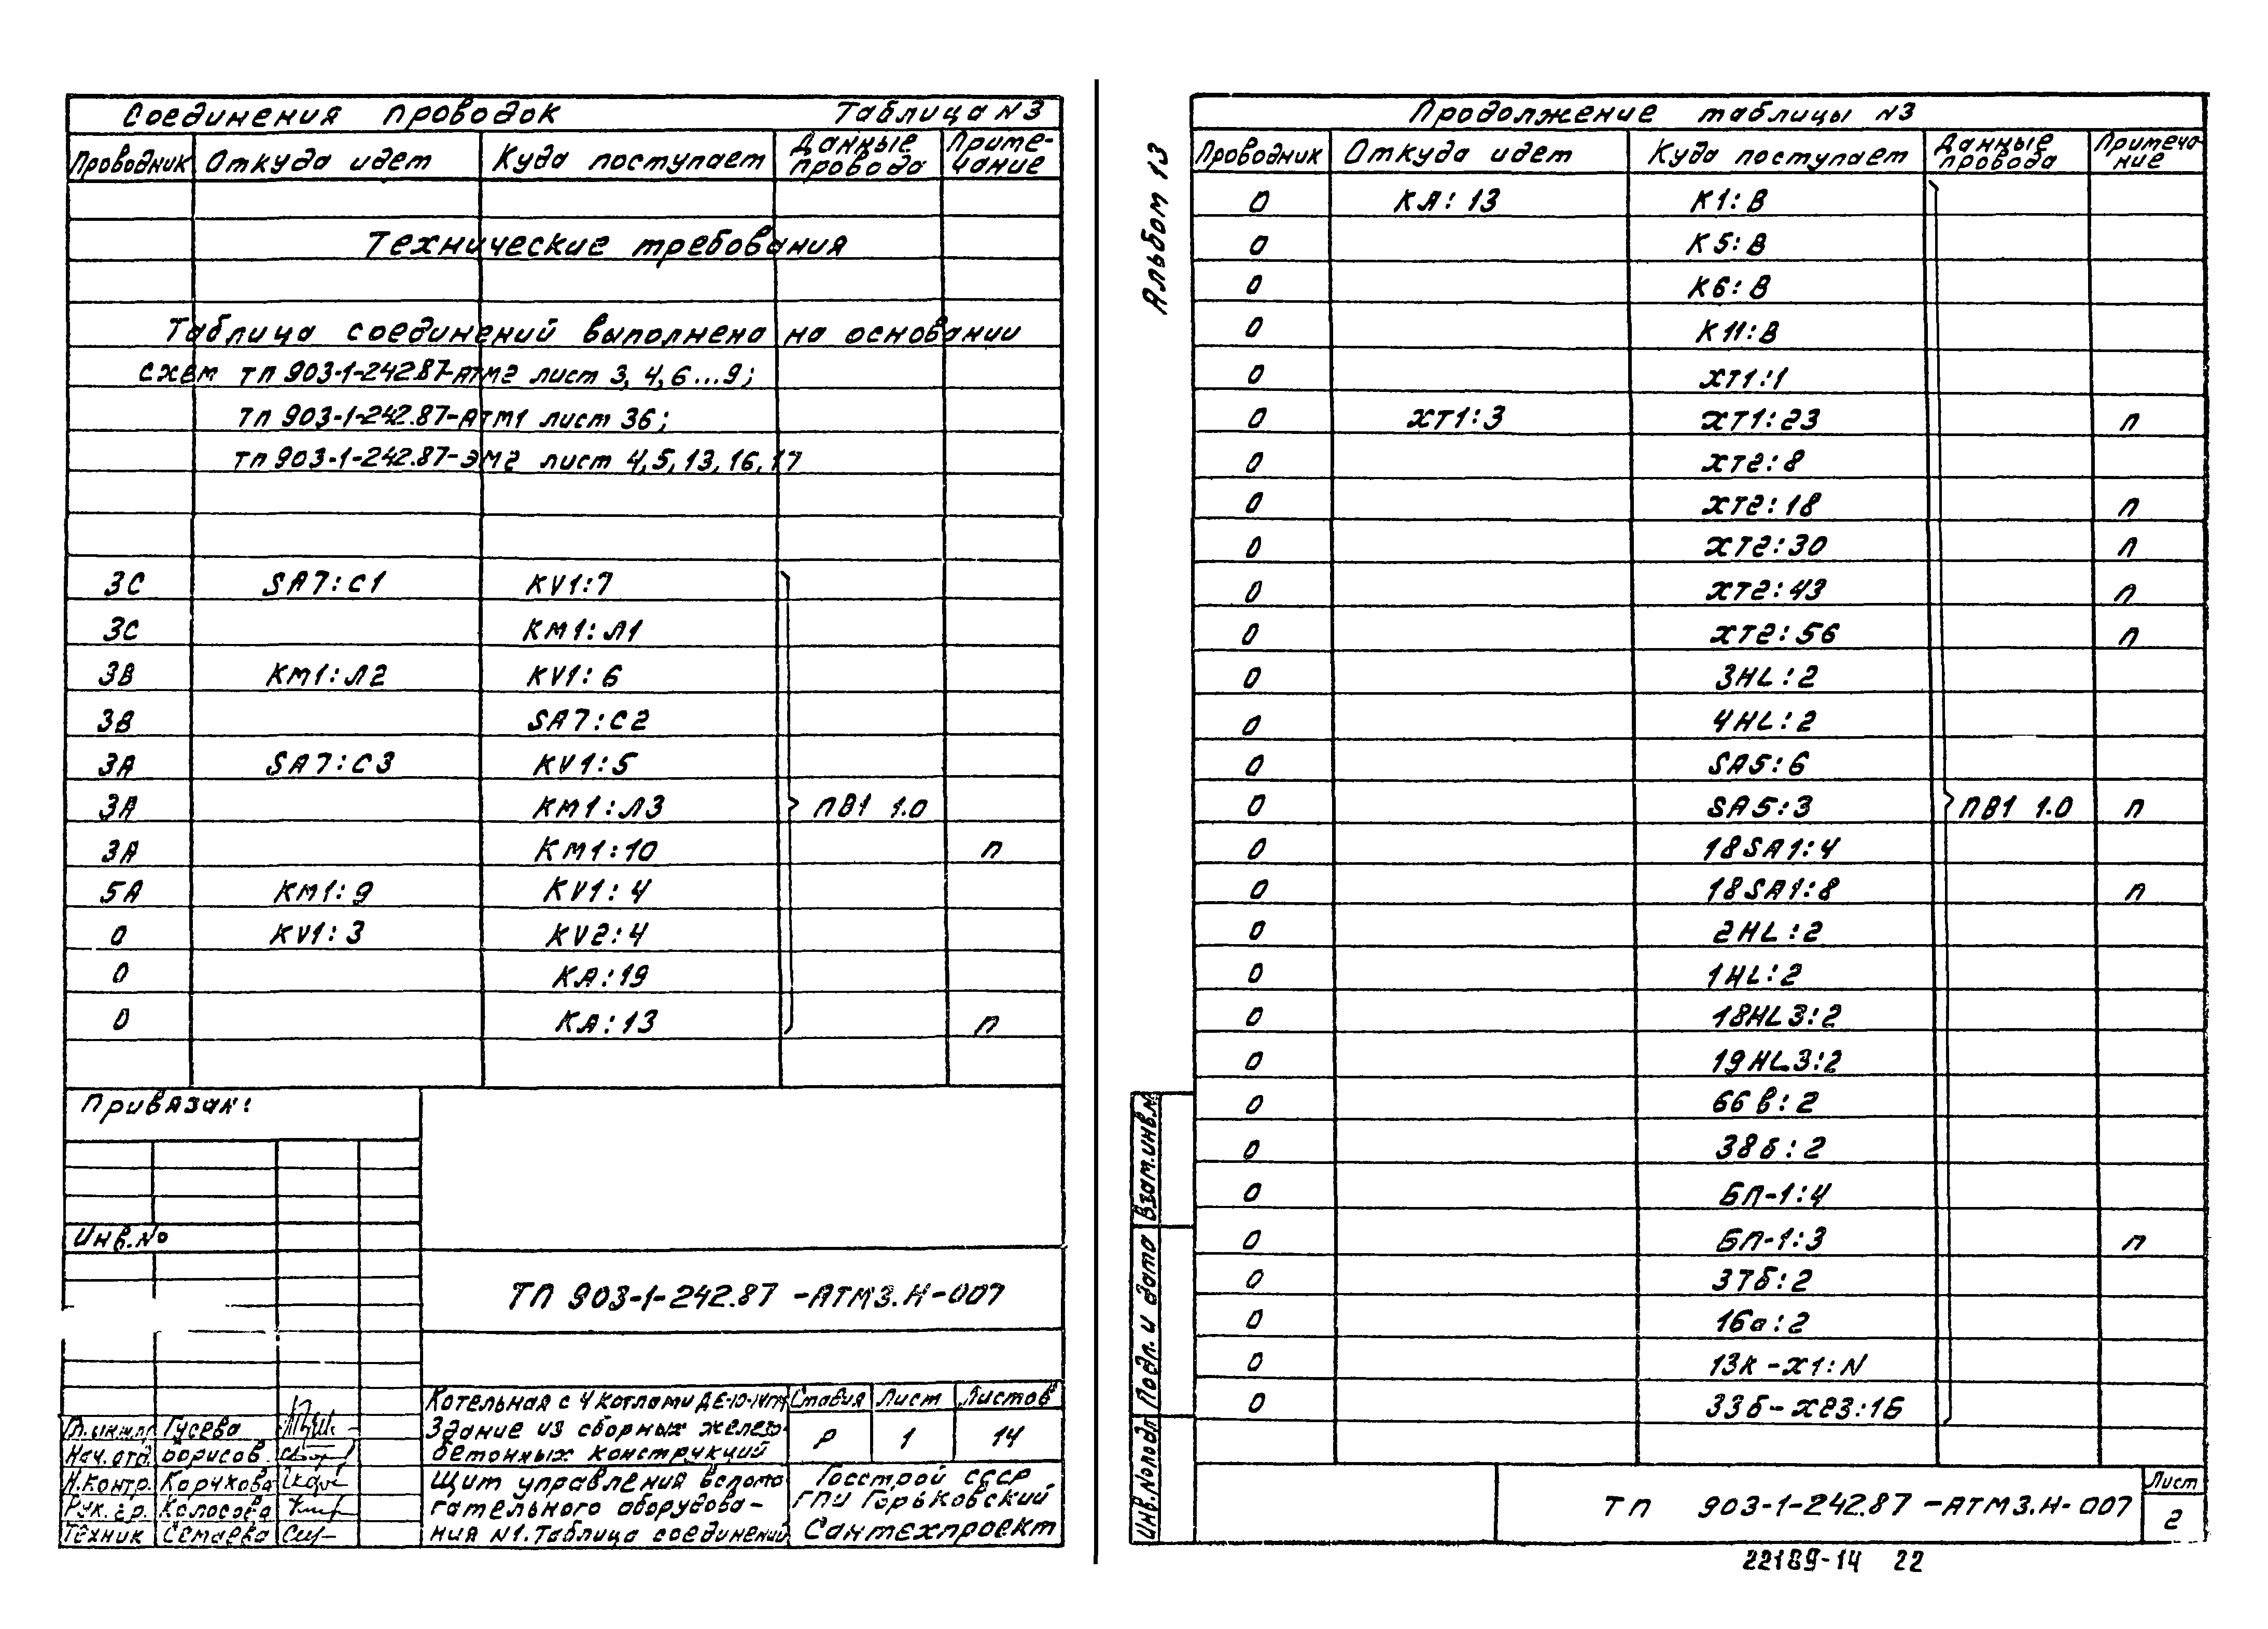 Соединения проводок Таблица N3
Проводник Откуда идет Куда поступает Данные провода Приме-чание
Технические требования
Таблица соединений выполнена на основании
схем ТП 903-1-242.87-АТМ2 лист 3, 4, 6...9;
ТП 903-1-242.87-АТМ1 лист 36;
ТП 903-1-242.87-ЭМ2 лист 4, 5, 13, 16, 17
3C SA7:C1 KV1:7
3C KM1:Л1
3B KM1:Л2 KV1:6
3B SA7:C2
3A SA7:C3 KV1:5
3A KM1:Л3 ПВ1 1.0
3A KM1:10 п
5A KM1:9 KV1:4
0 KV1:3 KV2:4
0 KA:19
0 KA:13 п
Привязан:
Инв.№
ТП 903-1-242.87 -АТМ3.Н-007
Котельная с 4 котлами ДЕ-10-14ГМ
Здание из сборных железо-
бетонных конструкций
Стадия Лист Листов
Р 1 14
Гусева
Нач.отд. Борисов
Н.контр. Корчкова
Рук.гр. Колосова
Техник Семаева
Щит управления вспомо
гательного оборудова-
ния N1. Таблица соединений
Госстрой СССР
ГПИ Горьковский
Сантехпроект
Альбом 13
Продолжение таблицы N3
Проводник Откуда идет Куда поступает Данные провода Примеча-ние
0 KA:13 K1:B
0 K5:B
0 K6:B
0 K11:B
0 XT1:1
0 XT1:3 XT1:23 п
0 XT2:8
0 XT2:18 п
0 XT2:30 п
0 XT2:43 п
0 XT2:56 п
0 3HL:2
0 4HL:2
0 SA5:6
0 SA5:3 ПВ1 1.0 п
0 18SA1:4
0 18SA1:8 п
0 2HL:2
0 1HL:2
0 18HL3:2
0 19HL3:2
0 66в:2
0 38б:2
0 БП-1:4
0 БП-1:3 п
0 37б:2
0 16а:2
0 13К-Х1:N
0 33б-Х23:1Б
Взам.инв.№
Подп. и дата
Инв.№подл
ТП 903-1-242.87 -АТМ3.Н-007
Лист
2
22189-14 22